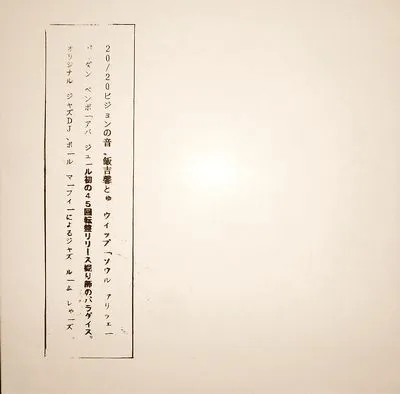 20/20ビジョンの音、飯吉馨とゅ ウィップ「ソウル
ダン ペンボ「アバ ジュール初の45回転盤リリース掘り師のパラダイス。
オリジナル ジャズDJ、ポール マーフィーによるジャズ ルーム